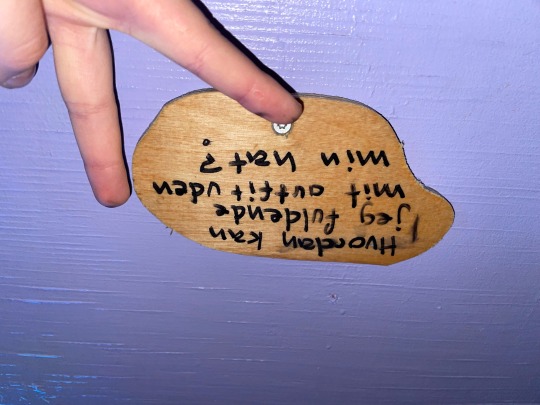 Hvordan kan
jeg fuldende
mit outfit uden
min hat?